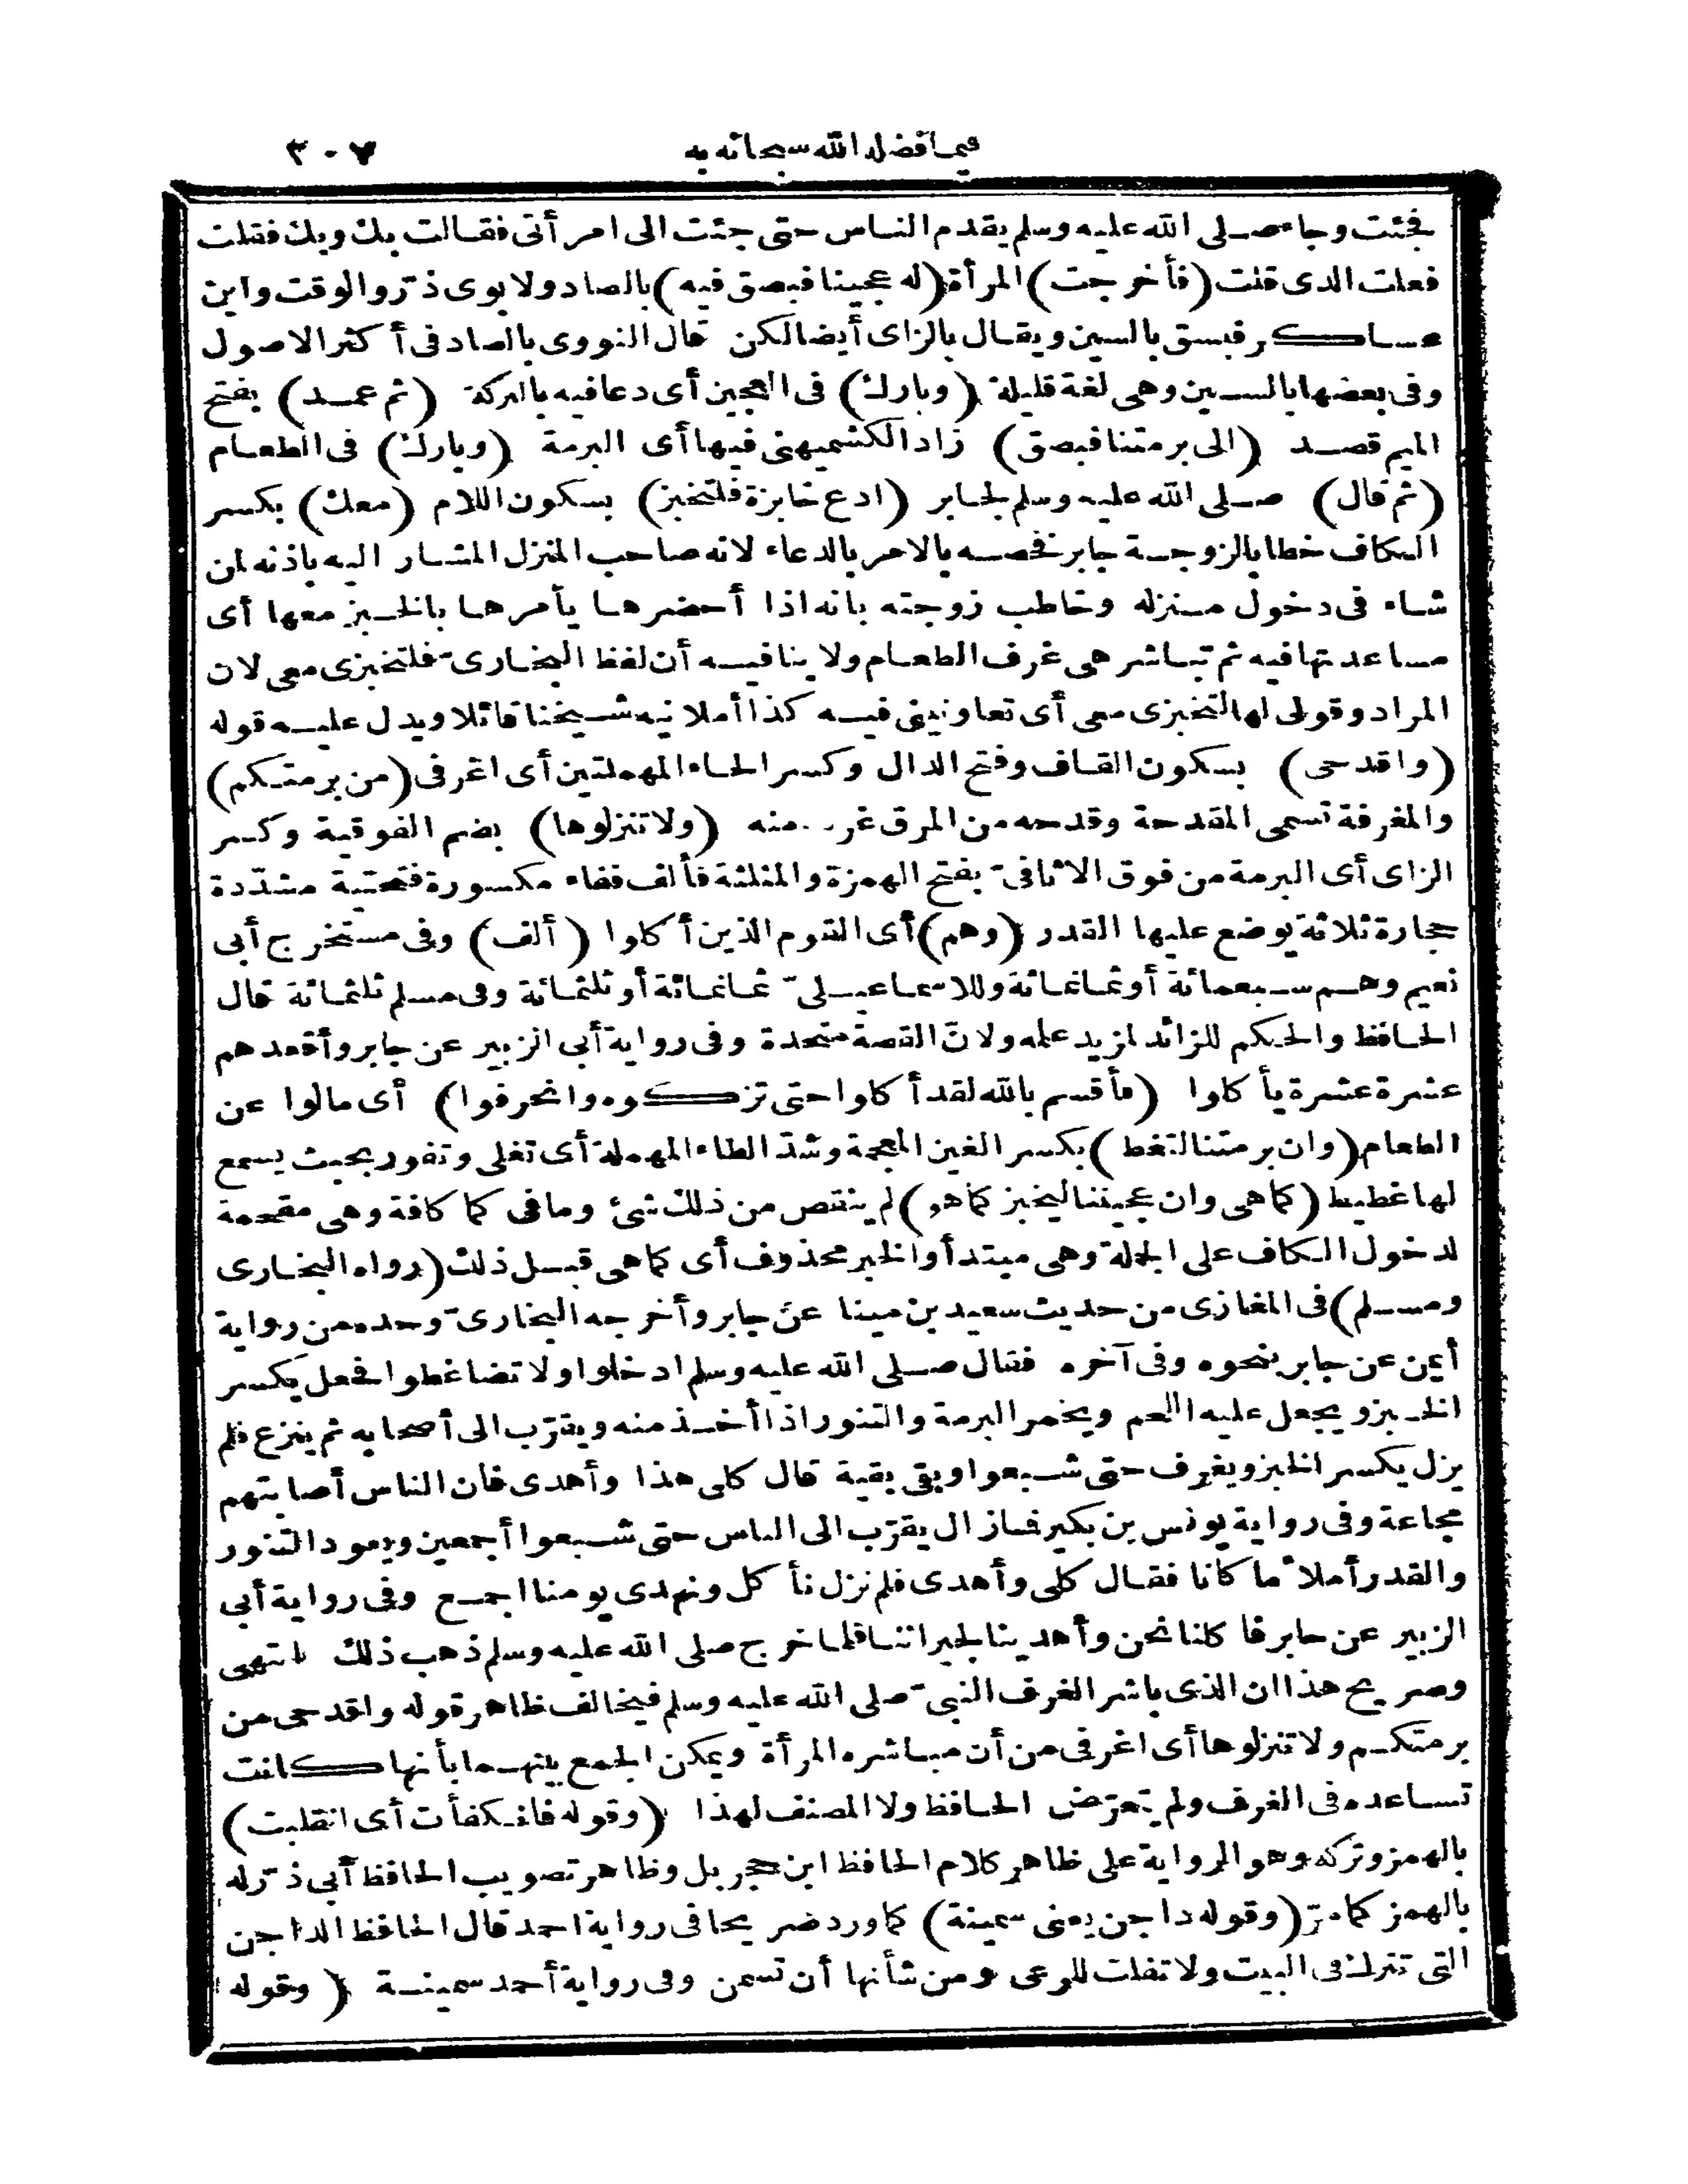 فيما فضله الله سبحانه به ٣٠٧
فجئت وجاء صلى الله عليه وسلم يقدم الناس حتى جئت الى امرأتى فقالت بك وبك فقلت
فعلت الذى قلت (فأخرجت) المرأة (له عجينا فبصق فيه) بالصاد ولابوى ذرّ والوقت وابن
عساكر فبسق بالسين ويقال بالزاى أيضا لكن قال النووى بالصاد فى أكثر الاصول
وفى بعضها بالسين وهى لغة قليلة (وبارك) فى العجين أى دعا فيه بالبركة (ثم عمد) بفتح
الميم قصد (الى برمتنا فبصق) زاد الكشميهنى فيها أى البرمة (وبارك) فى الطعام
(ثم قال) صلى الله عليه وسلم لجابر (ادع خابزة فلتخبز) بسكون اللام (معك) بكسر
الكاف خطابا لزوجة جابر فخصه بالامر بالدعاء لانه صاحب المنزل المشار اليه باذنه لمن
شاء فى دخول منزله وخاطب زوجته بانه اذا أحضرها يأمرها بالخبز معها أى
مساعدتها فيه ثم تباشر هى غرف الطعام ولا ينافيه أن لفظ البخارىّ فلتخبزى معى لان
المراد وقولى لها لتخبزى معى أى تعاونينى فيه كذا أملانيه شيخنا قائلا ويدل عليه قوله
(واقدحى) بسكون القاف وفتح الدال وكسر الحاء المهملتين أى اغرفى (من برمتكم)
والمغرفة تسمى المقدحة وقدحه من المرق غرف منه (ولا تنزلوها) بضم الفوقية وكسر
الزاى أى البرمة من فوق الاثافىّ بفتح الهمزة والمثلثة فألف ففاء مكسورة فتحتية مشدّدة
حجارة ثلاثة يوضع عليها القدر (وهم) أى القوم الذين أكلوا (ألف) وفى مستخرج أبى
نعيم وهم سبعمائة أو ثمانمائة وللاسماعيلىّ ثمانمائة أو ثلثمائة وفى مسلم ثلثمائة قال
الحافظ والحكم للزائد لمزيد علمه ولانّ القصة متحدة وفى رواية أبى الزبير عن جابر وأقعدهم
عشرة عشرة يأكلوا (فأقسم بالله لقد أكلوا حتى تركوه وانحرفوا) أى مالوا عن
الطعام (وان برمتنا لتغط) بكسر الغين المعجمة وشدّ الطاء المهملة أى تغلى وتفور بحيث يسمع
لها غطيط (كما هى وان عجيننا ليخبز كما هو) لم ينقص من ذلك شئ وما فى كما كافة وهى مقحمة
لدخول الكاف على الجملة وهى مبتدأ والخبر محذوف أى كما هى قبل ذلك (رواه البخارى
ومسلم) فى المغازى من حديث سعيد بن مينا عن جابر وأخرجه البخارىّ وحده من رواية
أيمن عن جابر بنحوه وفى آخره فقال صلى الله عليه وسلم ادخلوا ولا تضاغطوا فجعل يكسر
الخبز ويجعل عليه اللحم ويخمر البرمة والتنور اذا أخذ منه ويقرّب الى أصحابه ثم ينزع فلم
يزل يكسر الخبز ويغرف حتى شبعوا وبقى بقية قال كلى هذا وأهدى فان الناس أصابتهم
مجاعة وفى رواية يونس بن بكير فما زال يقرّب الى الناس حتى شبعوا أجمعين ويعود التنور
والقدر أملأ ما كانا فقال كلى وأهدى فلم نزل نأكل ونهدى يومنا اجمع وفى رواية أبى
الزبير عن جابر فأكلنا نحن وأهدينا لجيراننا فلما خرج صلى الله عليه وسلم ذهب ذلك انتهى
وصريح هذا ان الذى باشر الغرف النبىّ صلى الله عليه وسلم فيخالف ظاهر قوله واقدحى من
برمتكم ولا تنزلوها أى اغرفى من أن مباشره المرأة ويمكن الجمع بينهما بأنها كانت
تساعده فى الغرف ولم يتعرّض الحافظ ولا المصنف لهذا (وقوله فانكفأت أى انقلبت)
بالهمز وتركه وهو الرواية على ظاهر كلام الحافظ ابن حجر بل وظاهر تصويب الحافظ أبى ذرّ له
بالهمز كما مرّ (وقوله داجن يعنى سمينة) كما ورد صريحا فى رواية احمد قال الحافظ الداجن
التى تترك فى البيت ولا تفلت للرعى ومن شأنها أن تسمن وفى رواية أحمد سمينة (وقوله